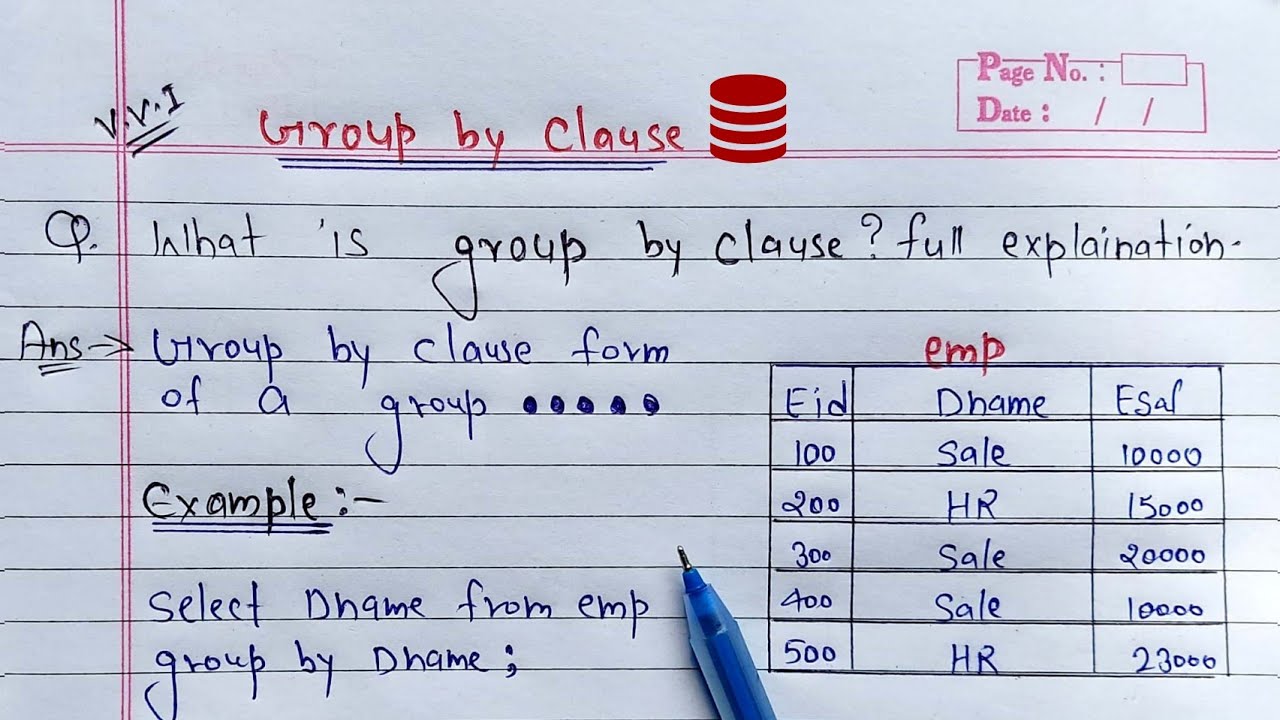 Page No. :
Date : / /
V.V.I
Group by Clause
Q. What is group by clause? full explaination.
Ans → Group by clause form
of a group •••••
Example :-
Select Dname from emp
group by Dname ;
emp
Eid Dname Esal
100 Sale 10000
200 HR 15000
300 Sale 20000
400 Sale 10000
500 HR 23000